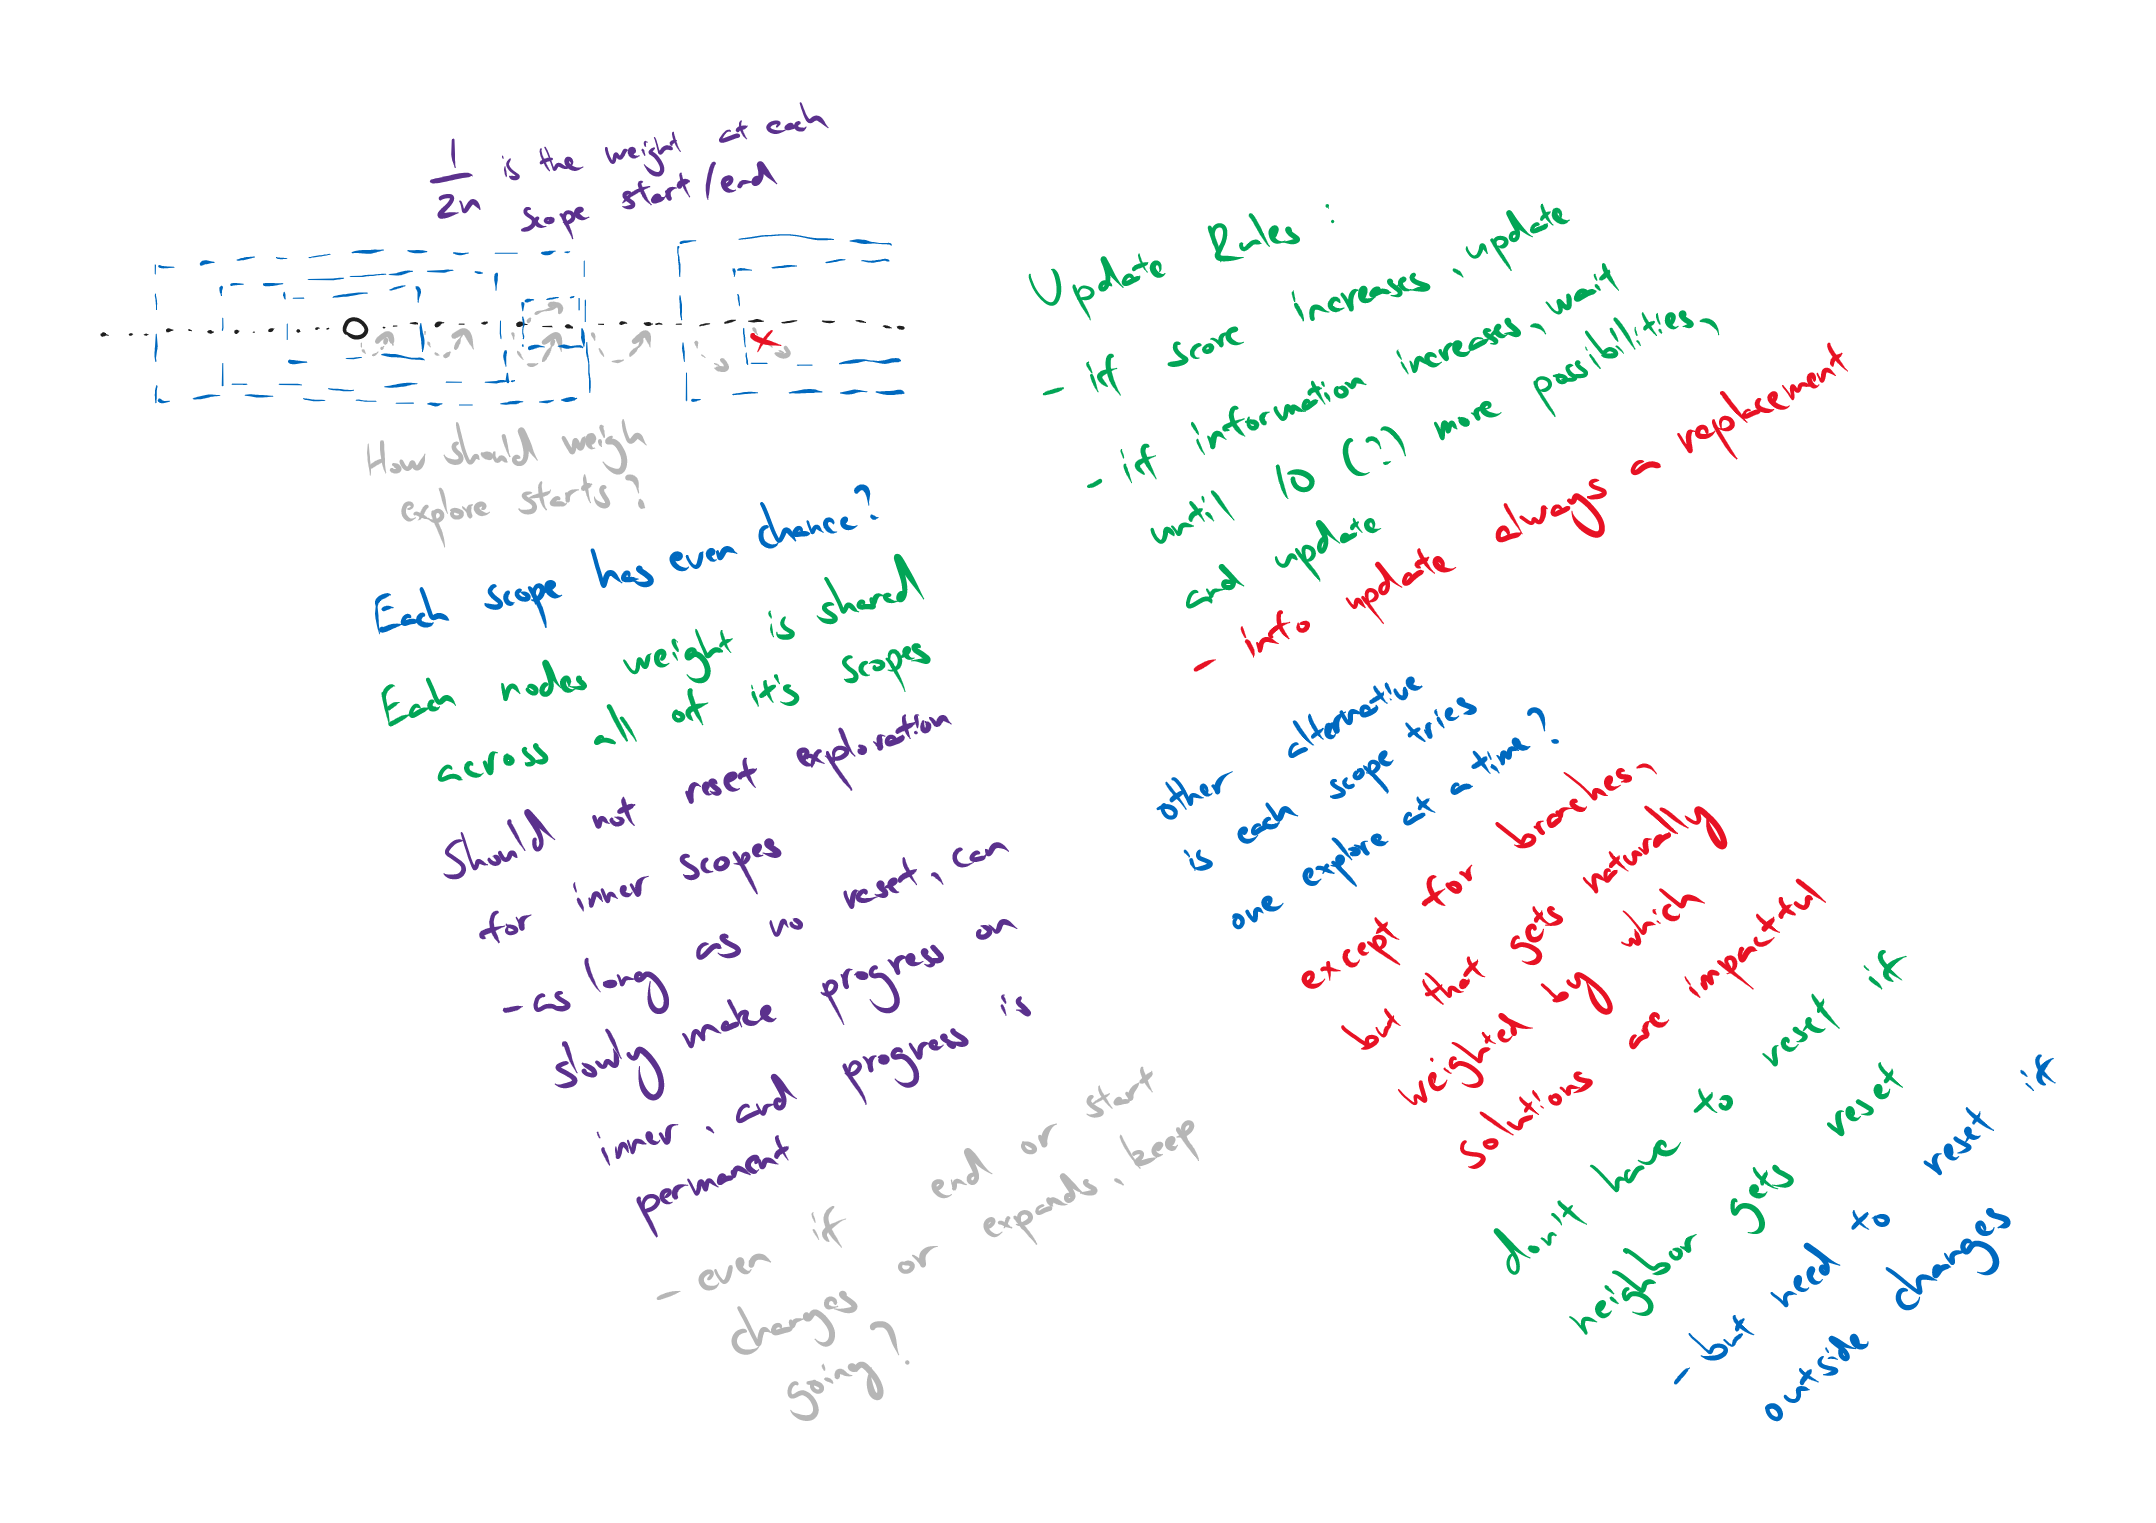 1/2n is the weight at each
scope start/end
How should weigh
explore starts?
Each scope has even chance?
Each nodes weight is shared
across all of it's scopes
Should not reset exploration
for inner scopes
- as long as no reset, can
slowly make progress on
inner, and progress is
permanent
- even if end or start
changes or expands, keep
going?
Update Rules:
- if score increases, update
- if information increases, wait
until 10 (?) more possibilities,
and update
- info update always a replacement
other alternative
is each scope tries
one explore at a time?
except for branches,
but that gets naturally
weighted by which
solutions are impactful
don't have to reset if
neighbor gets reset
- but need to reset if
outside changes